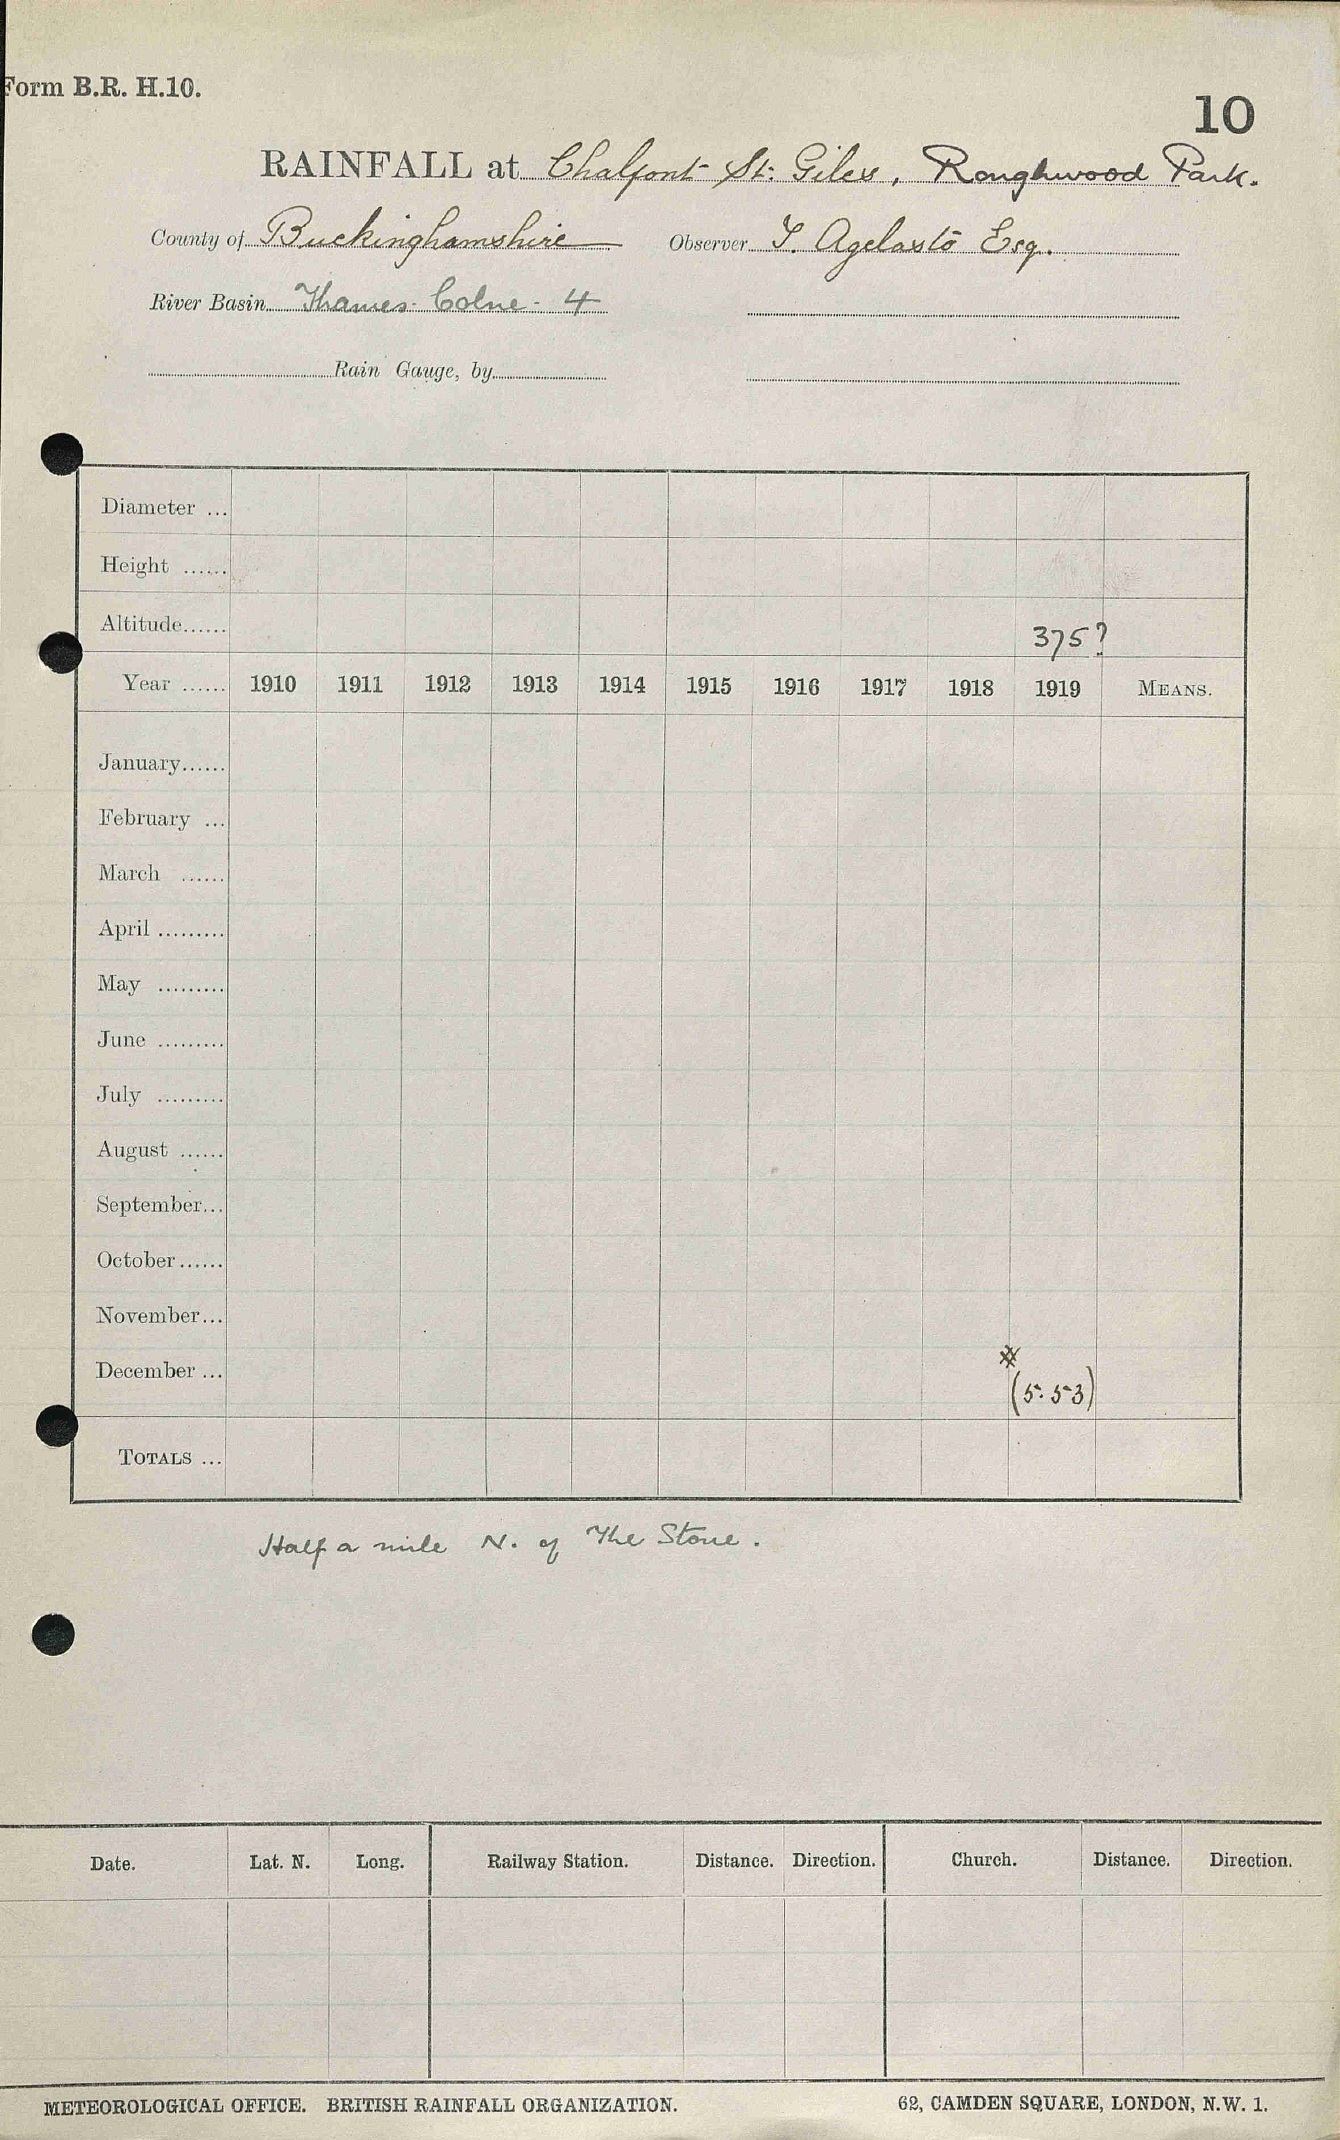 Form B.R. H.10.
10
RAINFALL at Chalfont St: Giles, Roughwood Park.
County of Buckinghamshire Observer T. Agelasto Esq.
River Basin Thames - Colne - 4
Rain Gauge, by
Diameter ...
Height ......
Altitude...... 375?
Year ...... 1910 1911 1912 1913 1914 1915 1916 1917 1918 1919 MEANS.
January......
February ...
March ......
April .........
May .........
June .........
July .........
August ......
September...
October......
November...
December ... (5.53)
TOTALS ...
Half a mile N. of The Stone.
Date. Lat. N. Long. Railway Station. Distance. Direction. Church. Distance. Direction.
METEOROLOGICAL OFFICE. BRITISH RAINFALL ORGANIZATION. 62, CAMDEN SQUARE, LONDON, N.W. 1.